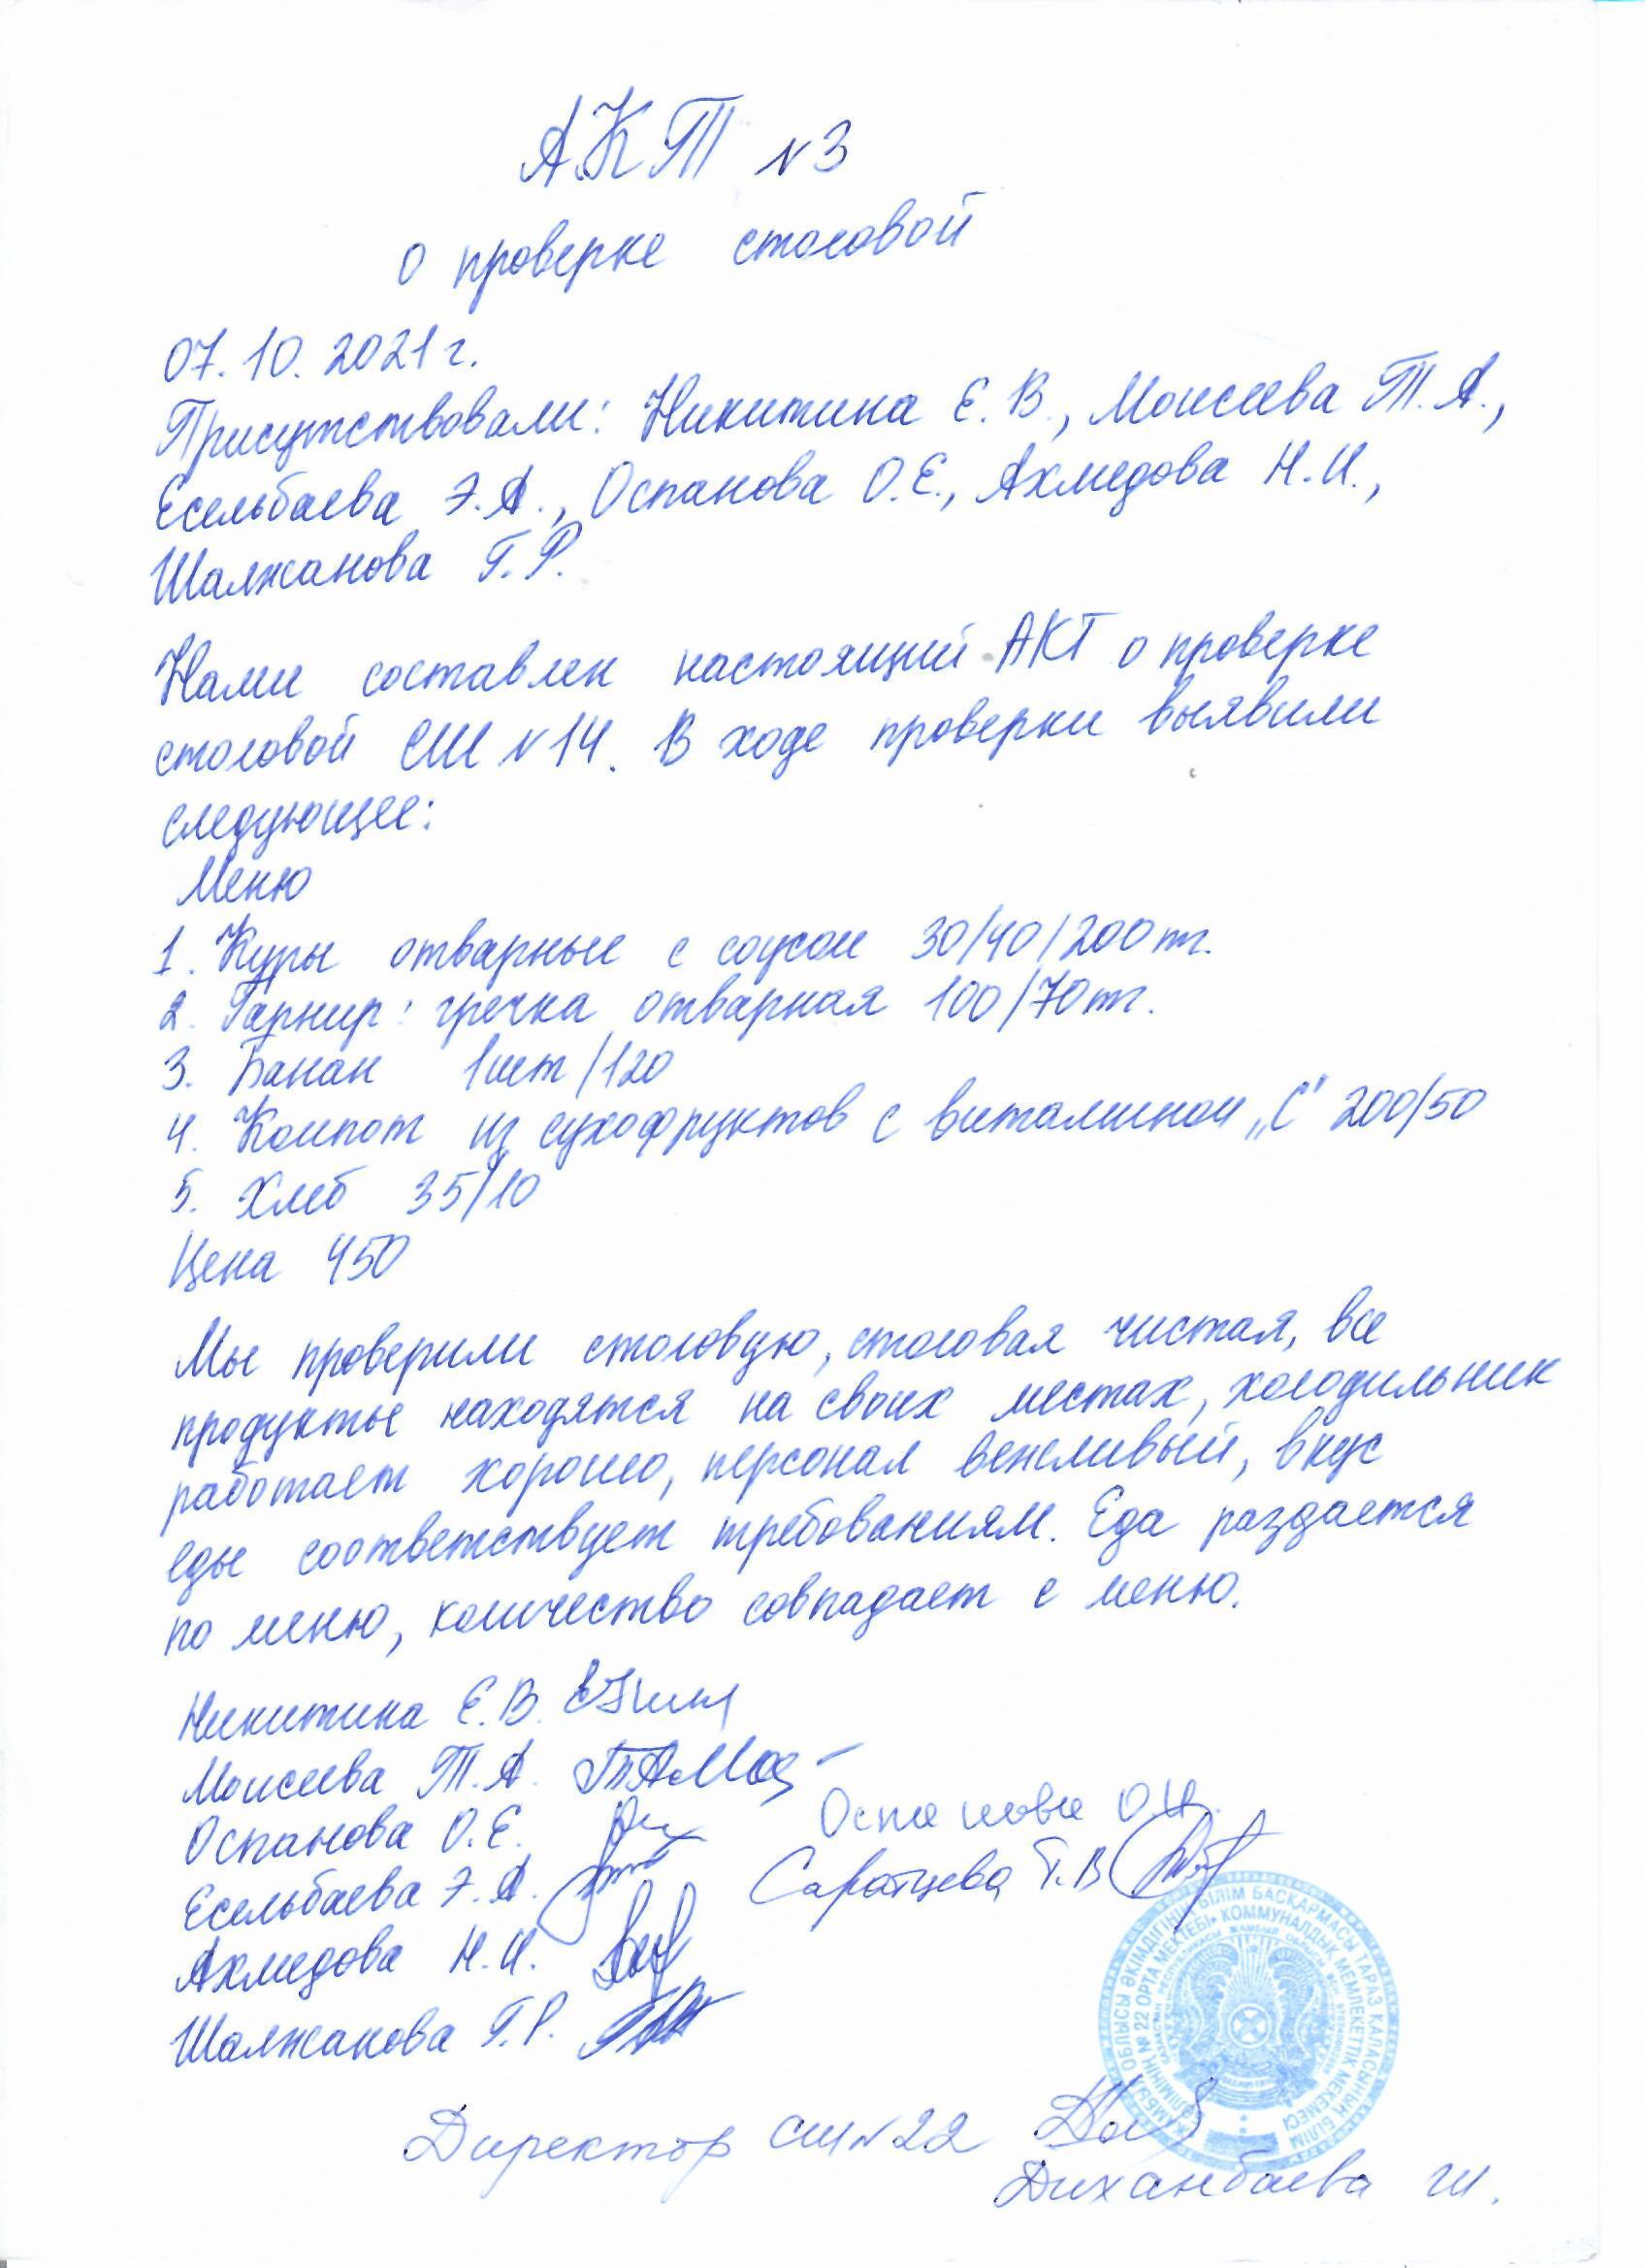 АКТ N3
о проверке столовой
07.10.2021г.
Присутствовали: Никитина Е.В., Моисеева Т.А.,
Есельбаева Э.А., Оспанова О.Е., Ахмедова Н.И.,
Шалжанова Г.Р.
Нами составлен настоящий АКТ о проверке
столовой СШ N14. В ходе проверки выявили
следующее:
Меню
1. Куры отварные с соусом 30/40/200тг.
2. Гарнир: гречка отварная 100/70тг.
3. Банан 1шт/120
4. Компот из сухофруктов с витамином „С" 200/50
5. Хлеб 35/10
Цена 450
Мы проверили столовую, столовая чистая, все
продукты находятся на своих местах, холодильник
работает хорошо, персонал вежливый, вкус
еды соответствует требованиям. Еда раздается
по меню, количество совпадает с меню.
Никитина Е.В.
Моисеева Т.А.
Оспанова О.Е. Оспанова О.И.
Есельбаева Э.А. Саратцева Т.В
Ахмедова Н.И.
Шалжанова Г.Р.
ОБЛЫСЫ ӘКІМДІГІНІҢ БІЛІМ БАСҚАРМАСЫ ТАРАЗ ҚАЛАСЫНЫҢ БІЛІМ
БӨЛІМІНІҢ № 22 ОРТА МЕКТЕБІ» КОММУНАЛДЫҚ МЕМЛЕКЕТТІК МЕКЕМЕСІ
Директор сш N22
Диханбаева Ш.